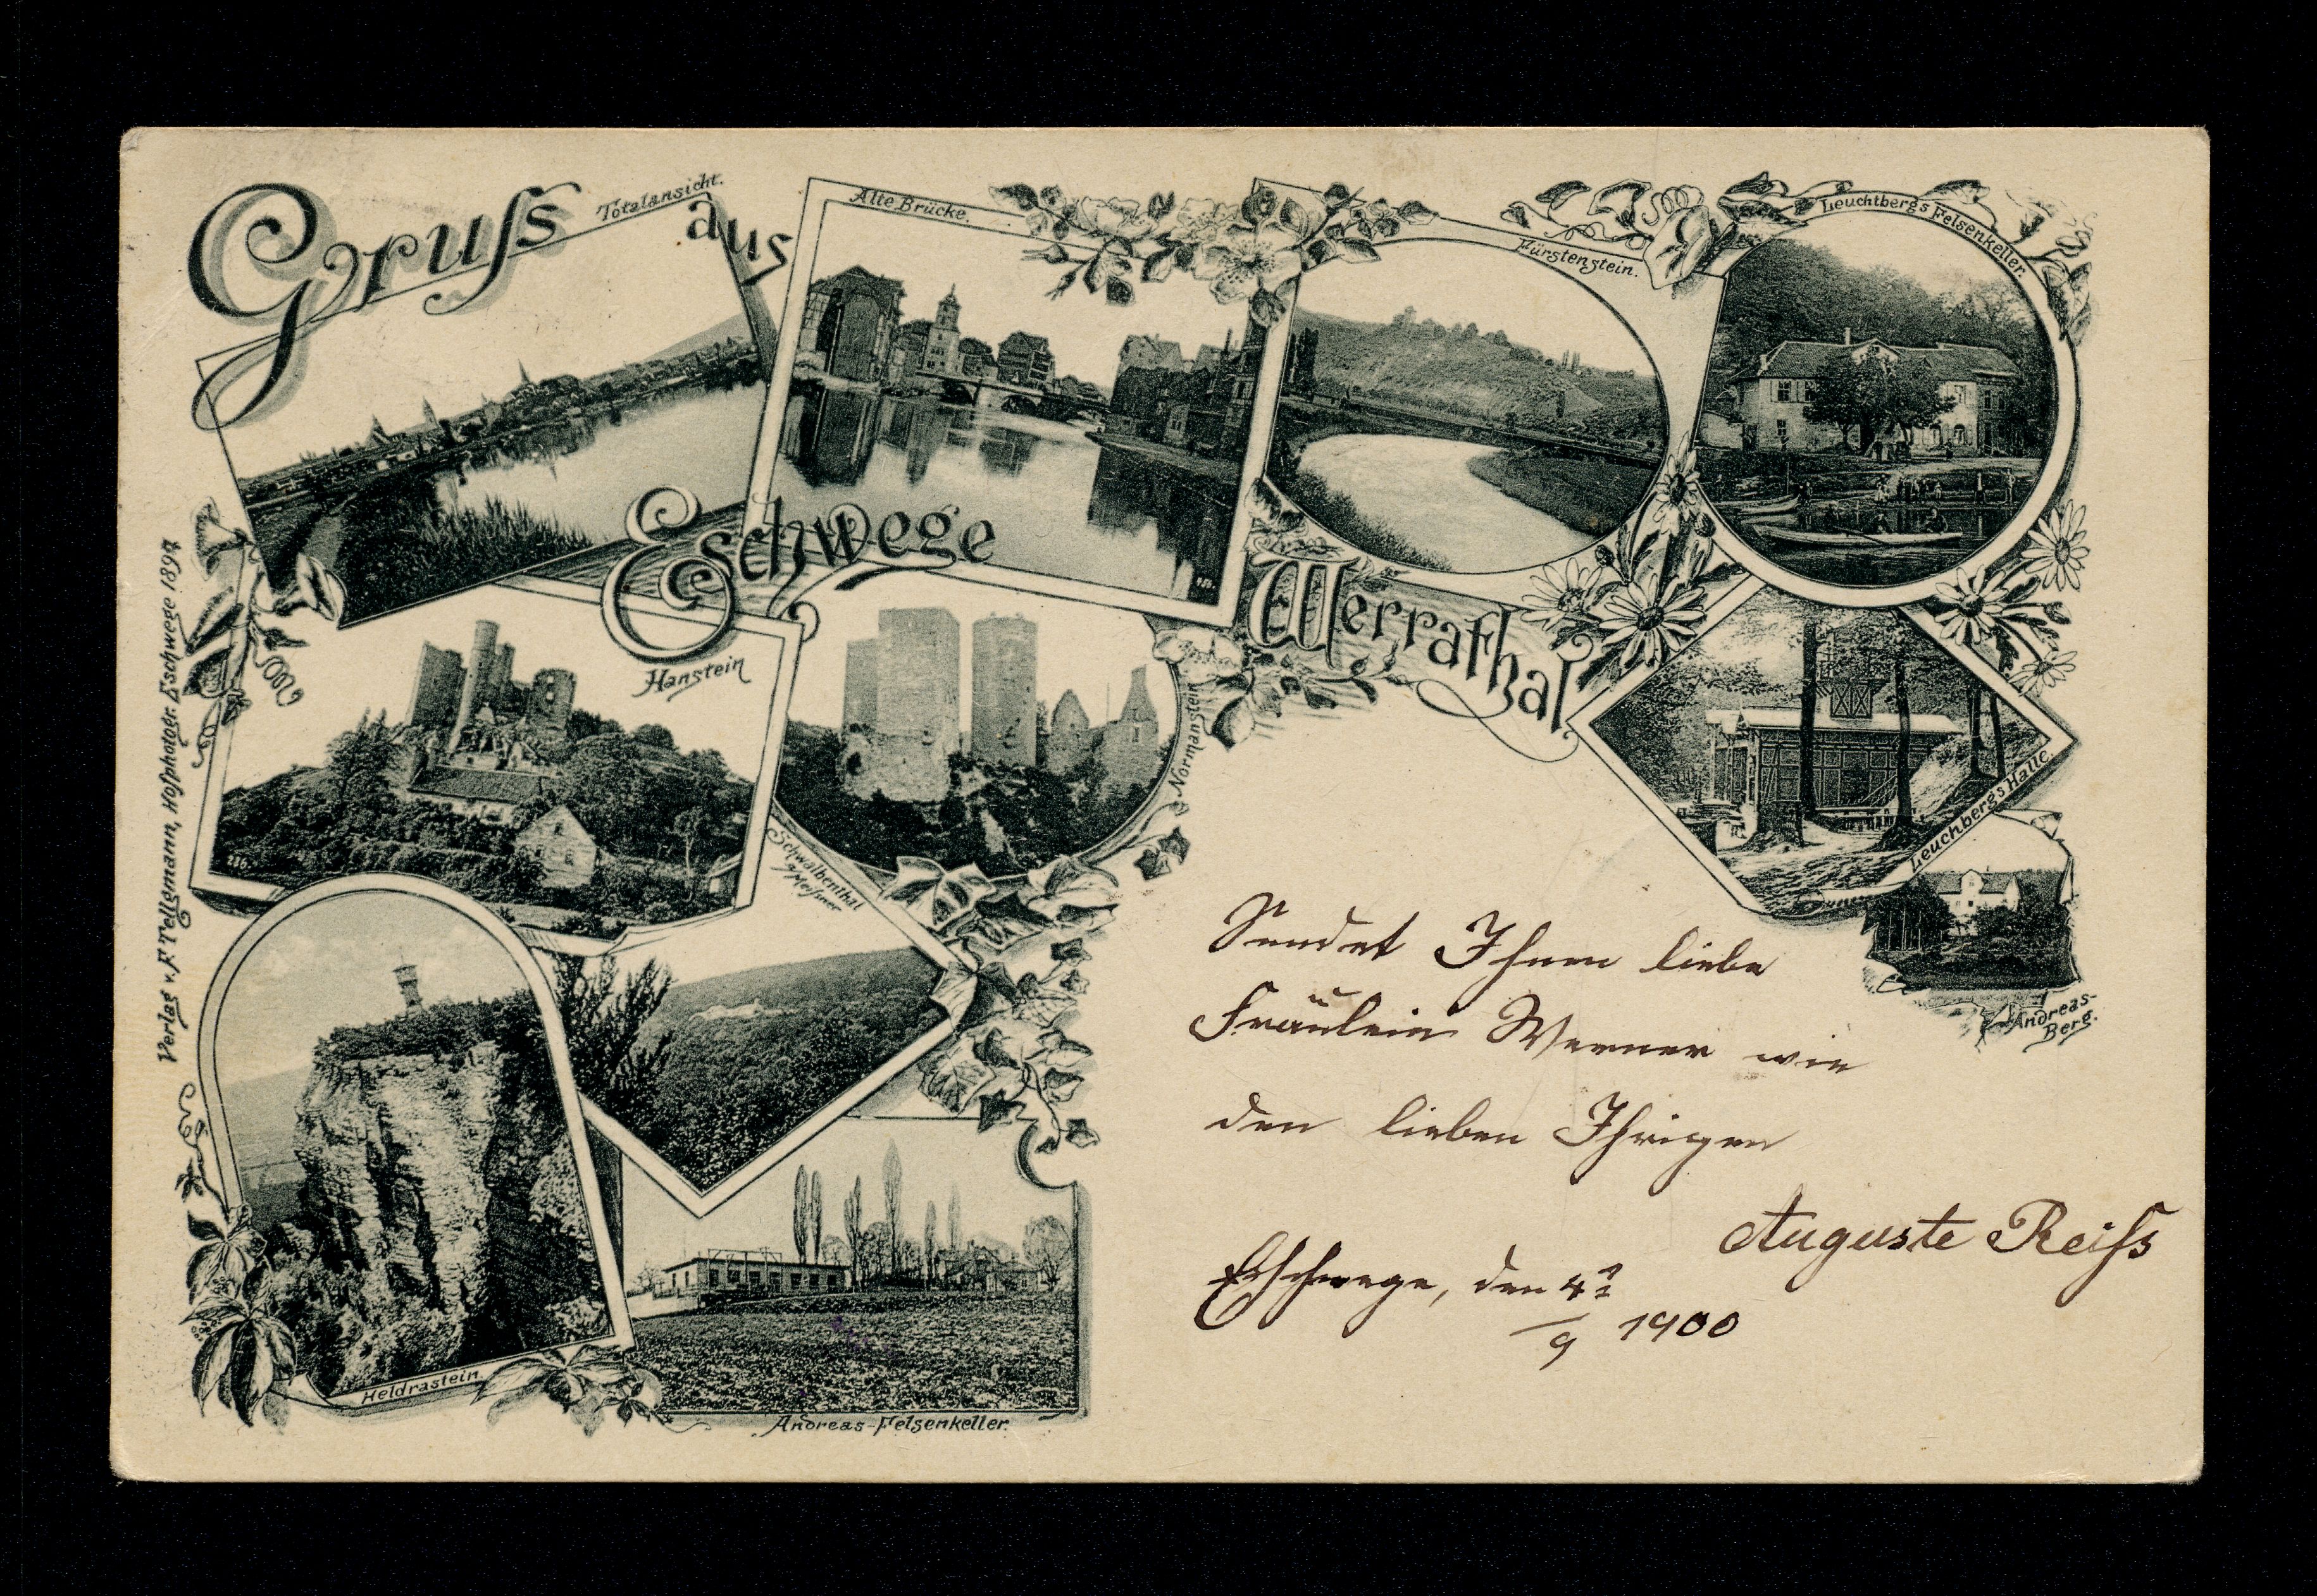 Gruſs aus
Totalansicht.
Alte Brücke.
Fürstenstein.
Leuchtbergs Felsenkeller.
Eschwege
Werrathal
Hanstein
Normanstein
Schwalbenthal
a/Meiſsner
Leuchbergs Halle.
Andreas-
Berg.
Heldrastein
Andreas-Felsenkeller.
Verlag v. F. Tellgmann, Hofphotogr. Eschwege 1897
Sendet Ihnen liebe
Fräulein Werner wie
den lieben Ihrigen
Auguste Reiſs
Eschwege, den
/9 1900